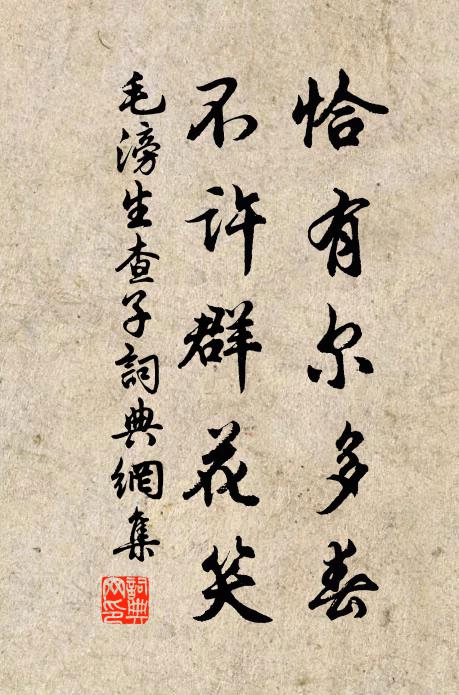 恰有尔多春
不许群花笑
毛滂生查子詞典網集
詞典网印